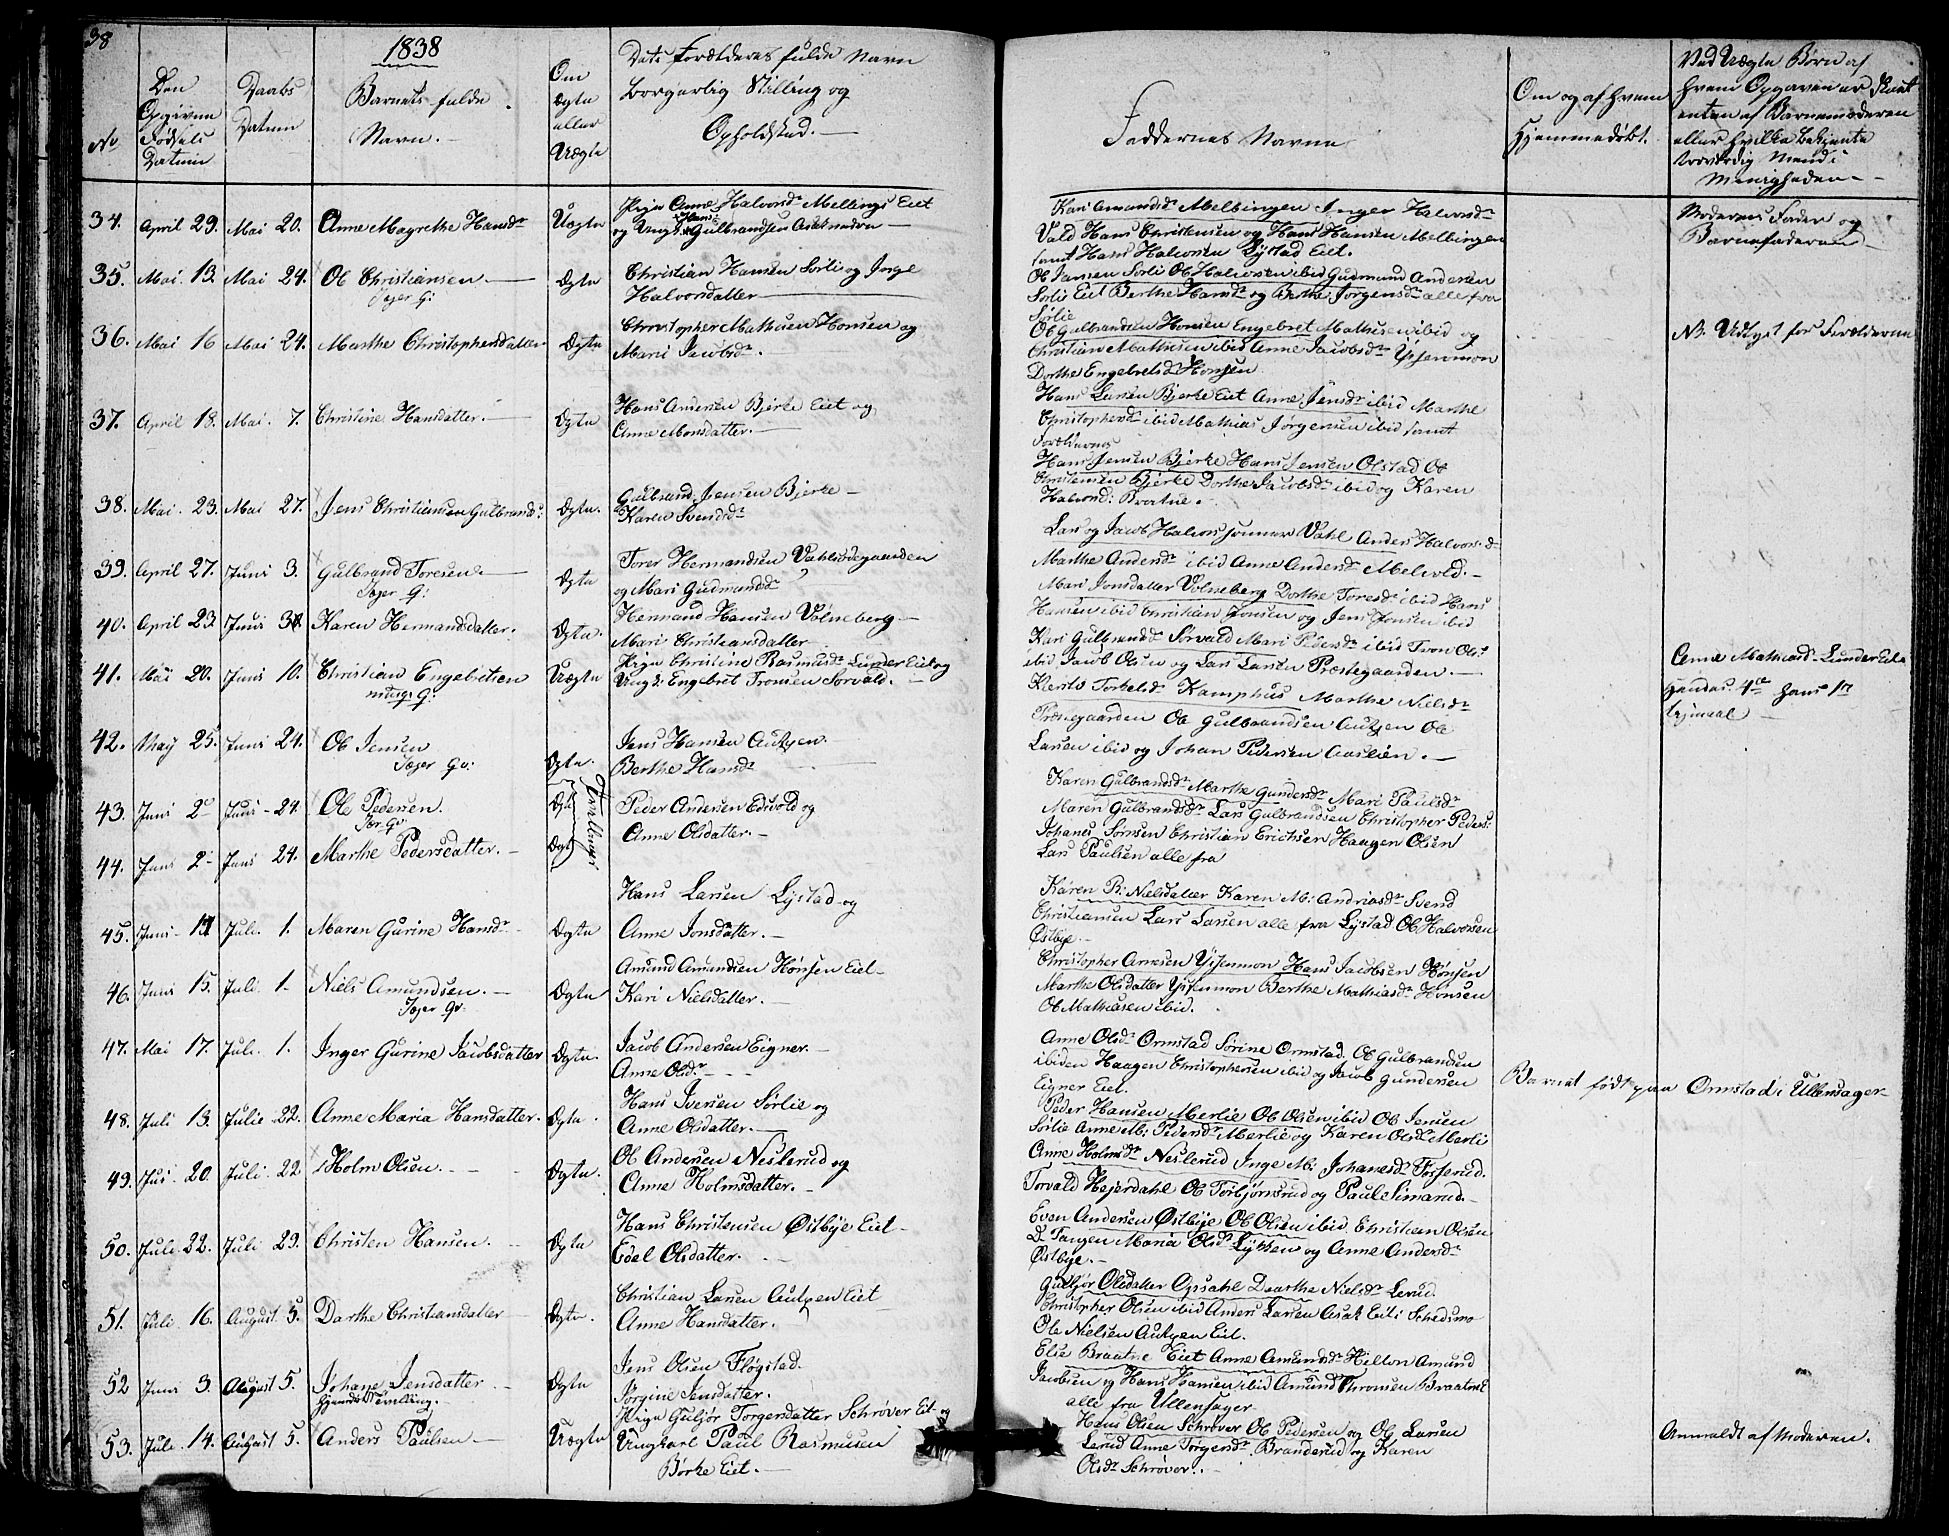 38
1838
No
Den Opgivne Fødsels Datum
Daabs Datum
Barnets fulde Navn.
Om ægte eller Uægte
Dets Forældres fulde Navn
borgerlig Stilling og
Opholdsted.
Faddernes Navne
Om og af hvem Hjemmedøbt.
Ved Uægte Børn af
hvem Opgaven er skeet
enten af Barnemoderen
eller hvilke bekjente
troværdig Mænd i
Menigheden
34. April 29. Mai 20. Anne Magrethe Hansdr Uægte
Pige Anne Halvorsdr Mellings Eiet
og Ungk Hans Gulbrandsen
Kari Amundsdr Melbingen Inger Halvorsdr
Vald Hans Christensen og Hans Hansen Melbingen
samt Hans Halvorsen Lystad Eiet.
Moderens Fader og
Barnefaderen
35. Mai. 13. Mai 24. Ole Christiansen. Ægte
Christian Hansen Sørli og Inge
Halvorsdatter
Ole Jansen Sørli Ole Halvorsen ibid Gudmund Andersen
Sørli Eiet Berthe Hansdr og Berthe Jørgensdr alle fra
Sørlie
36. Mai 16 Mai 24. Marthe Christophersdatter Ægte
Christopher Mathisen Honsen og
Marie Jacobsdr.
Ole Gulbrandsen Honsen Engebret Mathisen ibid og
Christian Mathisen ibid Anne Jacobsdr
Dorthe Engebretsd Honsen
37. April 18. Mai. 7. Christine Hansdatter. Ægte
Hans Andersen Bjerke Eiet og
Anne Monsdatter.
Hans Larsen Bjerke Eiet Anne Jensdr ibid Marthe
Christophersdr ibid Mathias Jørgensen ibid samt
Forældrene
38. Mai. 23. Mai 27. Jens Christiansen Gulbrands: Ægte.
Gulbrand Jensen Bjerke
Karen Svendsdr
Hans Jensen Bjerke Hans Jensen Olstad Ole
Christensen Bjerke Dorthe Jacobsdr ibid og Karen
Halvorsd: Braatne.
39. April 27. Juni 3. Gulbrand Toresen. Ægte
Torer Hermandsen
og Mari Gudmundsdr
Lars og Jacob Halvorssønner Vahl Anders Halvorsd
Marthe Andersdr ibid Anne Andersdr Melvold.
40. April 23 Juni 3 Karen Hermandsdatter. Ægte.
Hermand Hansen Volneberg
Mari Christiansdatter
Mari Jonsdatter Volneberg Dorthe Toresdr ibid Hans
Hansen ibid Christian Jonsen og Jens Jonsen ibid
41. Mai 20. Juni 10. Christian Engebretsen Uægte
Pige Christine Rasmusdr Lunder Eiet og
Ungk: Engebret Tronsen Sørvald.
Kari Gulbrandsdr Sørvald Mari Pedersdr ibid Tron Ols:
ibid Jacob Olsen og Lars Larsen Præstegaarden.
Anne Mathiasdr Lunder Eie
Hendes 4de hans 1te
Leiermaal
42. May 25. Juni 24. Ole Jensen Ægte.
Jens Hansen Autzen
Berthe Hansdr
Kiersti Torkelsdr Kamphus Marthe Nielsdr
Præstegaarden Ole Gulbrandsen Autzen Ole
Larsen ibid og Johan Pedersen Aaslien.
43. Juni 2. Juni 24. Ole Pedersen. Ægte
Tvillinger
Peder Andersen Edsvold og
Anne Olsdatter.
44. Juni 2. Juni 24. Marthe Pedersdatter. Ægte
Karen Gulbrandsdr Marthe Gundersdr Mari Paulsdr
Maren Gulbrandsdr Lars Gulbrandsen Christopher Peders:
Johanes Sørnsen Christian Erichsen Haagen Olsen
Lars Paulsen alle fra
45. Juni Juli. 1. Maren Gurine Hansdr Ægte
Hans Larsen Lystad og
Anne Jonsdatter.
Karen R: Nielsdatter Karen M: Andriasdr Svend
Christiansen Lars Larsen alle fra Lystad Ole Halvorsen
Østbye.
46. Juni 15. Juli. 1. Niels Amundsen. Ægte
Amund Amundsen Hønsen Eiet
Kari Nielsdatter.
Christopher Arnesen Hans Jacobsen Hønsen
Marthe Olsdatter Berthe Mathiasdr Honsen
Ole Mathisen ibid.
47. Mai 17. Juli. 1. Inger Gurine Jacobsdatter Ægte.
Jacob Andersen Eigner.
Anne Olsdr
Anne Olsdr Ormstad Sørine Ormstad Ole Gulbrandsen
ibiden Haagen Christophersen ibid og Jacob Gundersen
Eigner Eiet.
Barnet født paa Ormstad i Ullensager
48. Juli 13. Julie 22. Anne Maria Hansdatter. Ægte.
Hans Iversen Sørlie og
Anne Olsdatter.
Peder Hansen Merlie Ole Olsen ibid Ole Jensen
Sørlie Anne M: Pedersdr Merlie og Karen Olsdr Merli
49. Jui. 20. Juli. 22 Holm Olsen. Ægte.
Ole Andersen Neslerud og
Anne Holmsdatter.
Anne Holmsdr Neslerud Inge M: Johanesdr Forserud.
Torvald Hejerdahl Ole Torbjørnsrud og Paul Simarud.
50. Juli. 22. Juli 29. Christen Hansen. Ægte
Hans Christensen Østbye Eiet
Edel Olsdatter.
Even Andersen Østbye Ole Olsen ibid Christian Olsen
Tangen Maria Olsdr Lykken og Anne Andersdr
Østbye.
51. Juli. 16. August 5. Dorthe Christiansdatter Ægte.
Christian Larsen Autzen Eiet
Anne Hansdatter.
Guljør Olsdatter Opsahl Dorthe Nielsdr Lerud
Christopher Olsen ibid Anders Larsen Asak Eiet i Schedsmo
Ole Nielsen Autzen Eiet.
52 Juni 3. August 5. Johane Jensdatter Ægte
Jens Olsen Fløgstad.
Jørgine Jensdatter.
Elise Braatne Eiet Anne Amundsdr Hilton Amund
Jacobsen og Hans Hansen ibid Amund Thronsen Braatne
alle fra Ullensager
53. Juli. 14. August 5. Anders Paulsen Uægte
Pige Guljør Torgersdatter Schrøver Eit og
Ungkarl Paul Rasmusen
Borke Eiet.
Hans Olsen Schrøver Ole Pedersen og Ole Larsen
Larud Anne Torgersdr Branderud og Karen
Olsdr Schrøver.
Anmeldt af Moderen.